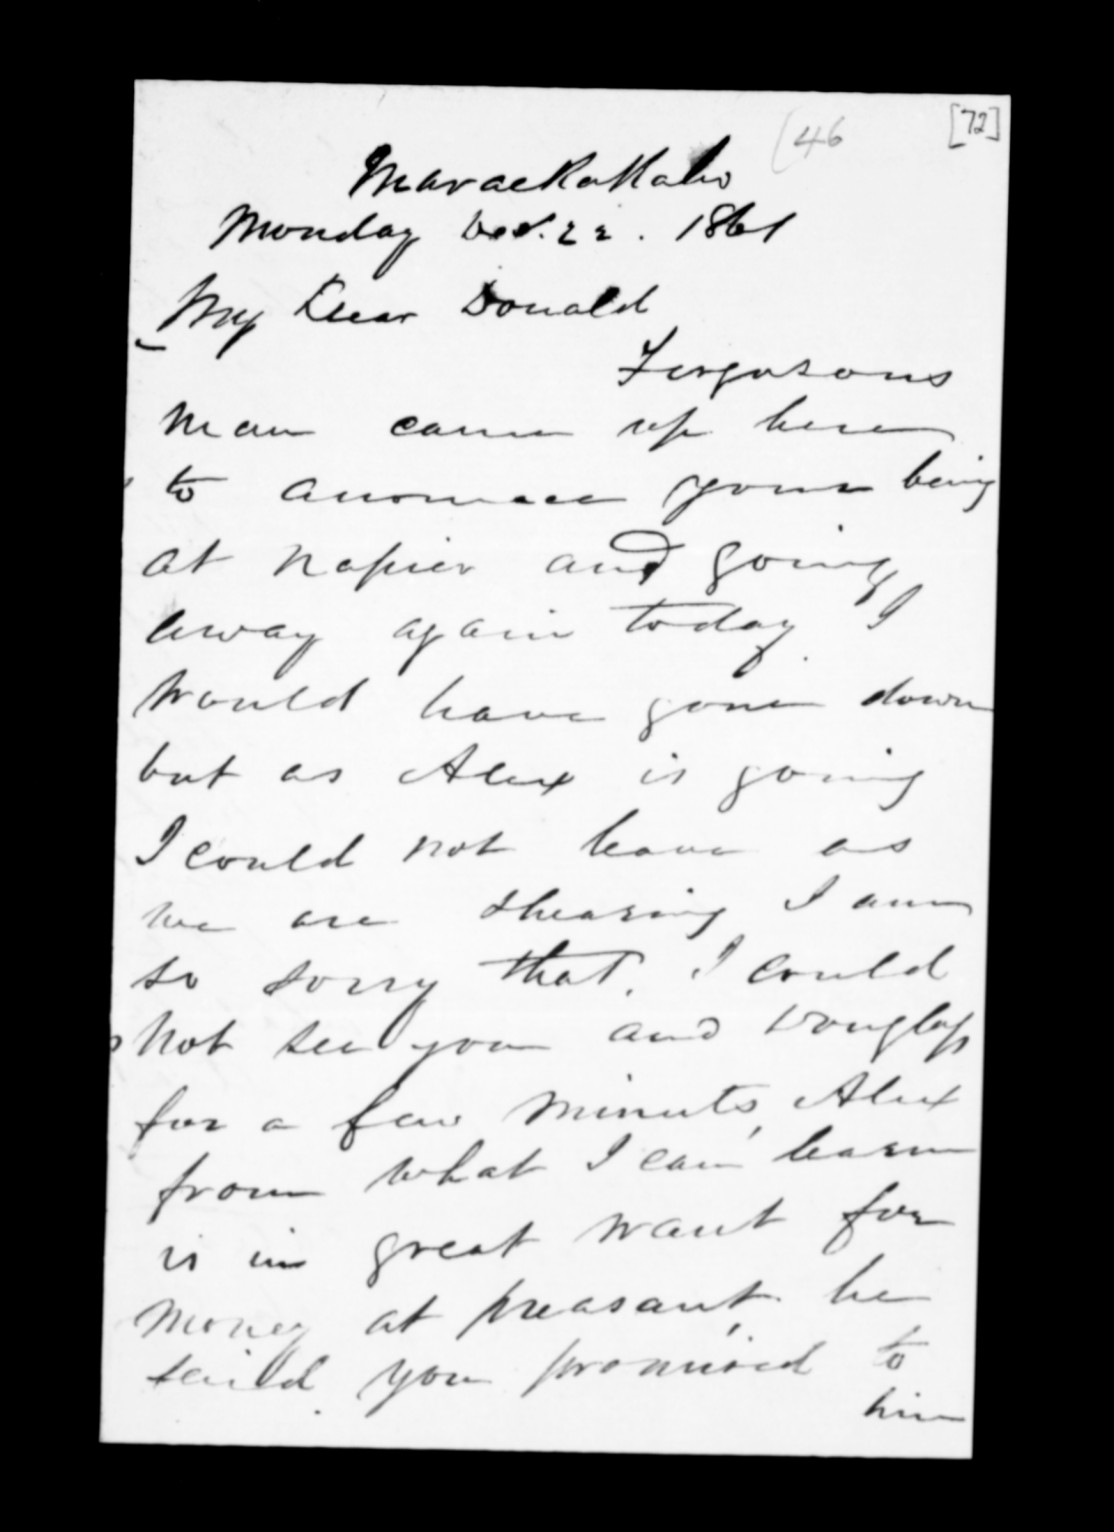 (46
[72]
MaraeKaKaho
Monday Dec. 22. 1861
My Dear Donald
Fergusons
man came up here
to anounce your being
at Napier and going
away again today. I
would have gone down
but as Alex is going
I could not leave as
we are shearing I am
so sorry that, I could
not see you and Douglass
for a few minuts, Alex
from what I can learn
is in great want for
money at preasant, he
said you promised to
him